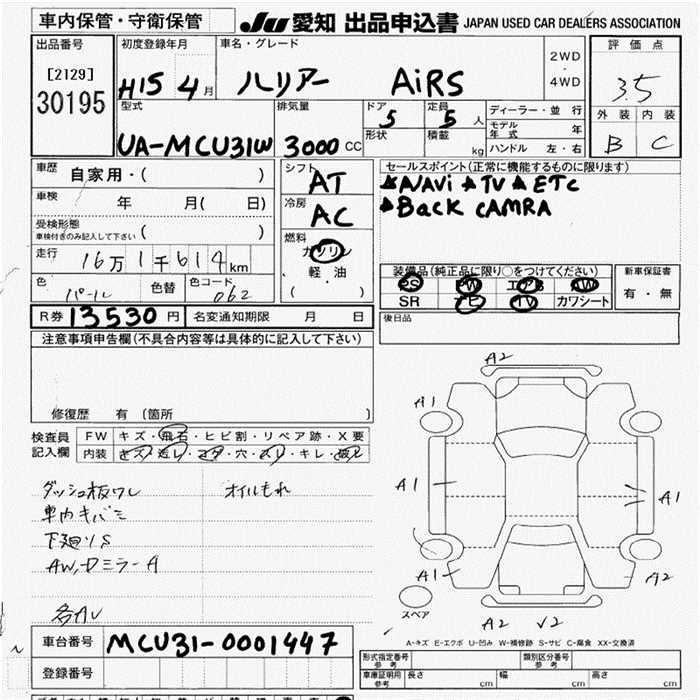 車内保管・守衛保管 JU 愛知 出品申込書 JAPAN USED CAR DEALERS ASSOCIATION
出品番号
[2129]
30195
初度登録年月
H15 4月
車名・グレード
ハリアー AiRS
2WD
・
4WD
評価点
3.5
外装 内装
B C
型式
UA-MCU31W
排気量
3000 CC
ドア
5
定員
5 人
形状
積載
kg
ディーラー・並行
モデル年式 年
ハンドル 左・右
車歴
自家用・( )
車検 年 月( 日)
受検形態
車検付きのみ記入して下さい ( )
走行
16万1千614km
色
パール
色替
色コード
062
シフト
AT
冷房
AC
燃料
ガソリン
軽油
( )
セールスポイント(正常に機能するものに限ります)
★NAVi ★TV ★ETC
★Back CAMRA
装備品(純正品に限り○をつけてください)
PS PW エアB AW
SR ナビ TV カワシート
新車保証書
有・無
R券 13530 円
名変通知期限 月 日
後日品
注意事項申告欄(不具合内容等は具体的に記入して下さい)
修復歴 有 (箇所 )
検査員
記入欄
FW キズ・飛石・ヒビ割・リペア跡・X要
内装 キズ・汚レ・コゲ・穴・スリ・キレ・破レ
ダッシュ板ワレ オイルもれ
車内キバミ
下廻りS
AW,Dミラー A
A2
A1 A1
A1 A1
A1 A2
A2 V2
スペア
A-キズ E-エクボ U-凹み W-補修跡 S-サビ C-腐食 XX-交換済
車台番号
MCU31-0001447
登録番号
型式指定番号
参考
類別区分番号
参考
車庫証明用
参考
長さ cm 幅 cm 高さ cm